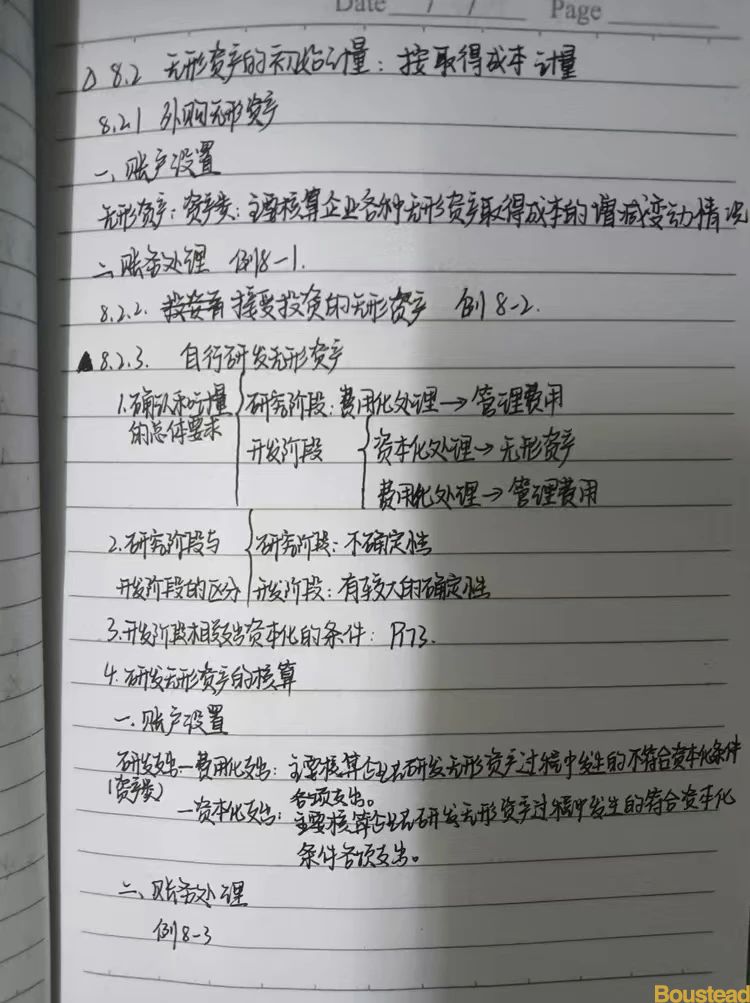 Date / / Page
△ 8.2 无形资产的初始计量：按取得成本计量
8.2.1 外购无形资产
一、账户设置
无形资产：资产类：主要核算企业各种无形资产取得成本的增减变动情况
二、账务处理 例8-1.
8.2.2. 接受投资的无形资产 例8-2.
▲8.2.3. 自行研发无形资产
1.确认和计量 研究阶段：费用化处理→管理费用
的总体要求 开发阶段 资本化处理→无形资产
费用化处理→管理费用
2.研究阶段与 研究阶段：不确定性
开发阶段的区分 开发阶段：有较大的确定性
3.开发阶段相关支出资本化的条件：P173.
4.研发无形资产的核算
一、账户设置
研发支出—费用化支出：主要核算企业研发无形资产过程中发生的不符合资本化条件
(资产类) 各项支出。
—资本化支出：主要核算企业研发无形资产过程中发生的符合资本化
条件各项支出。
二、账务处理
例8-3
Boustead